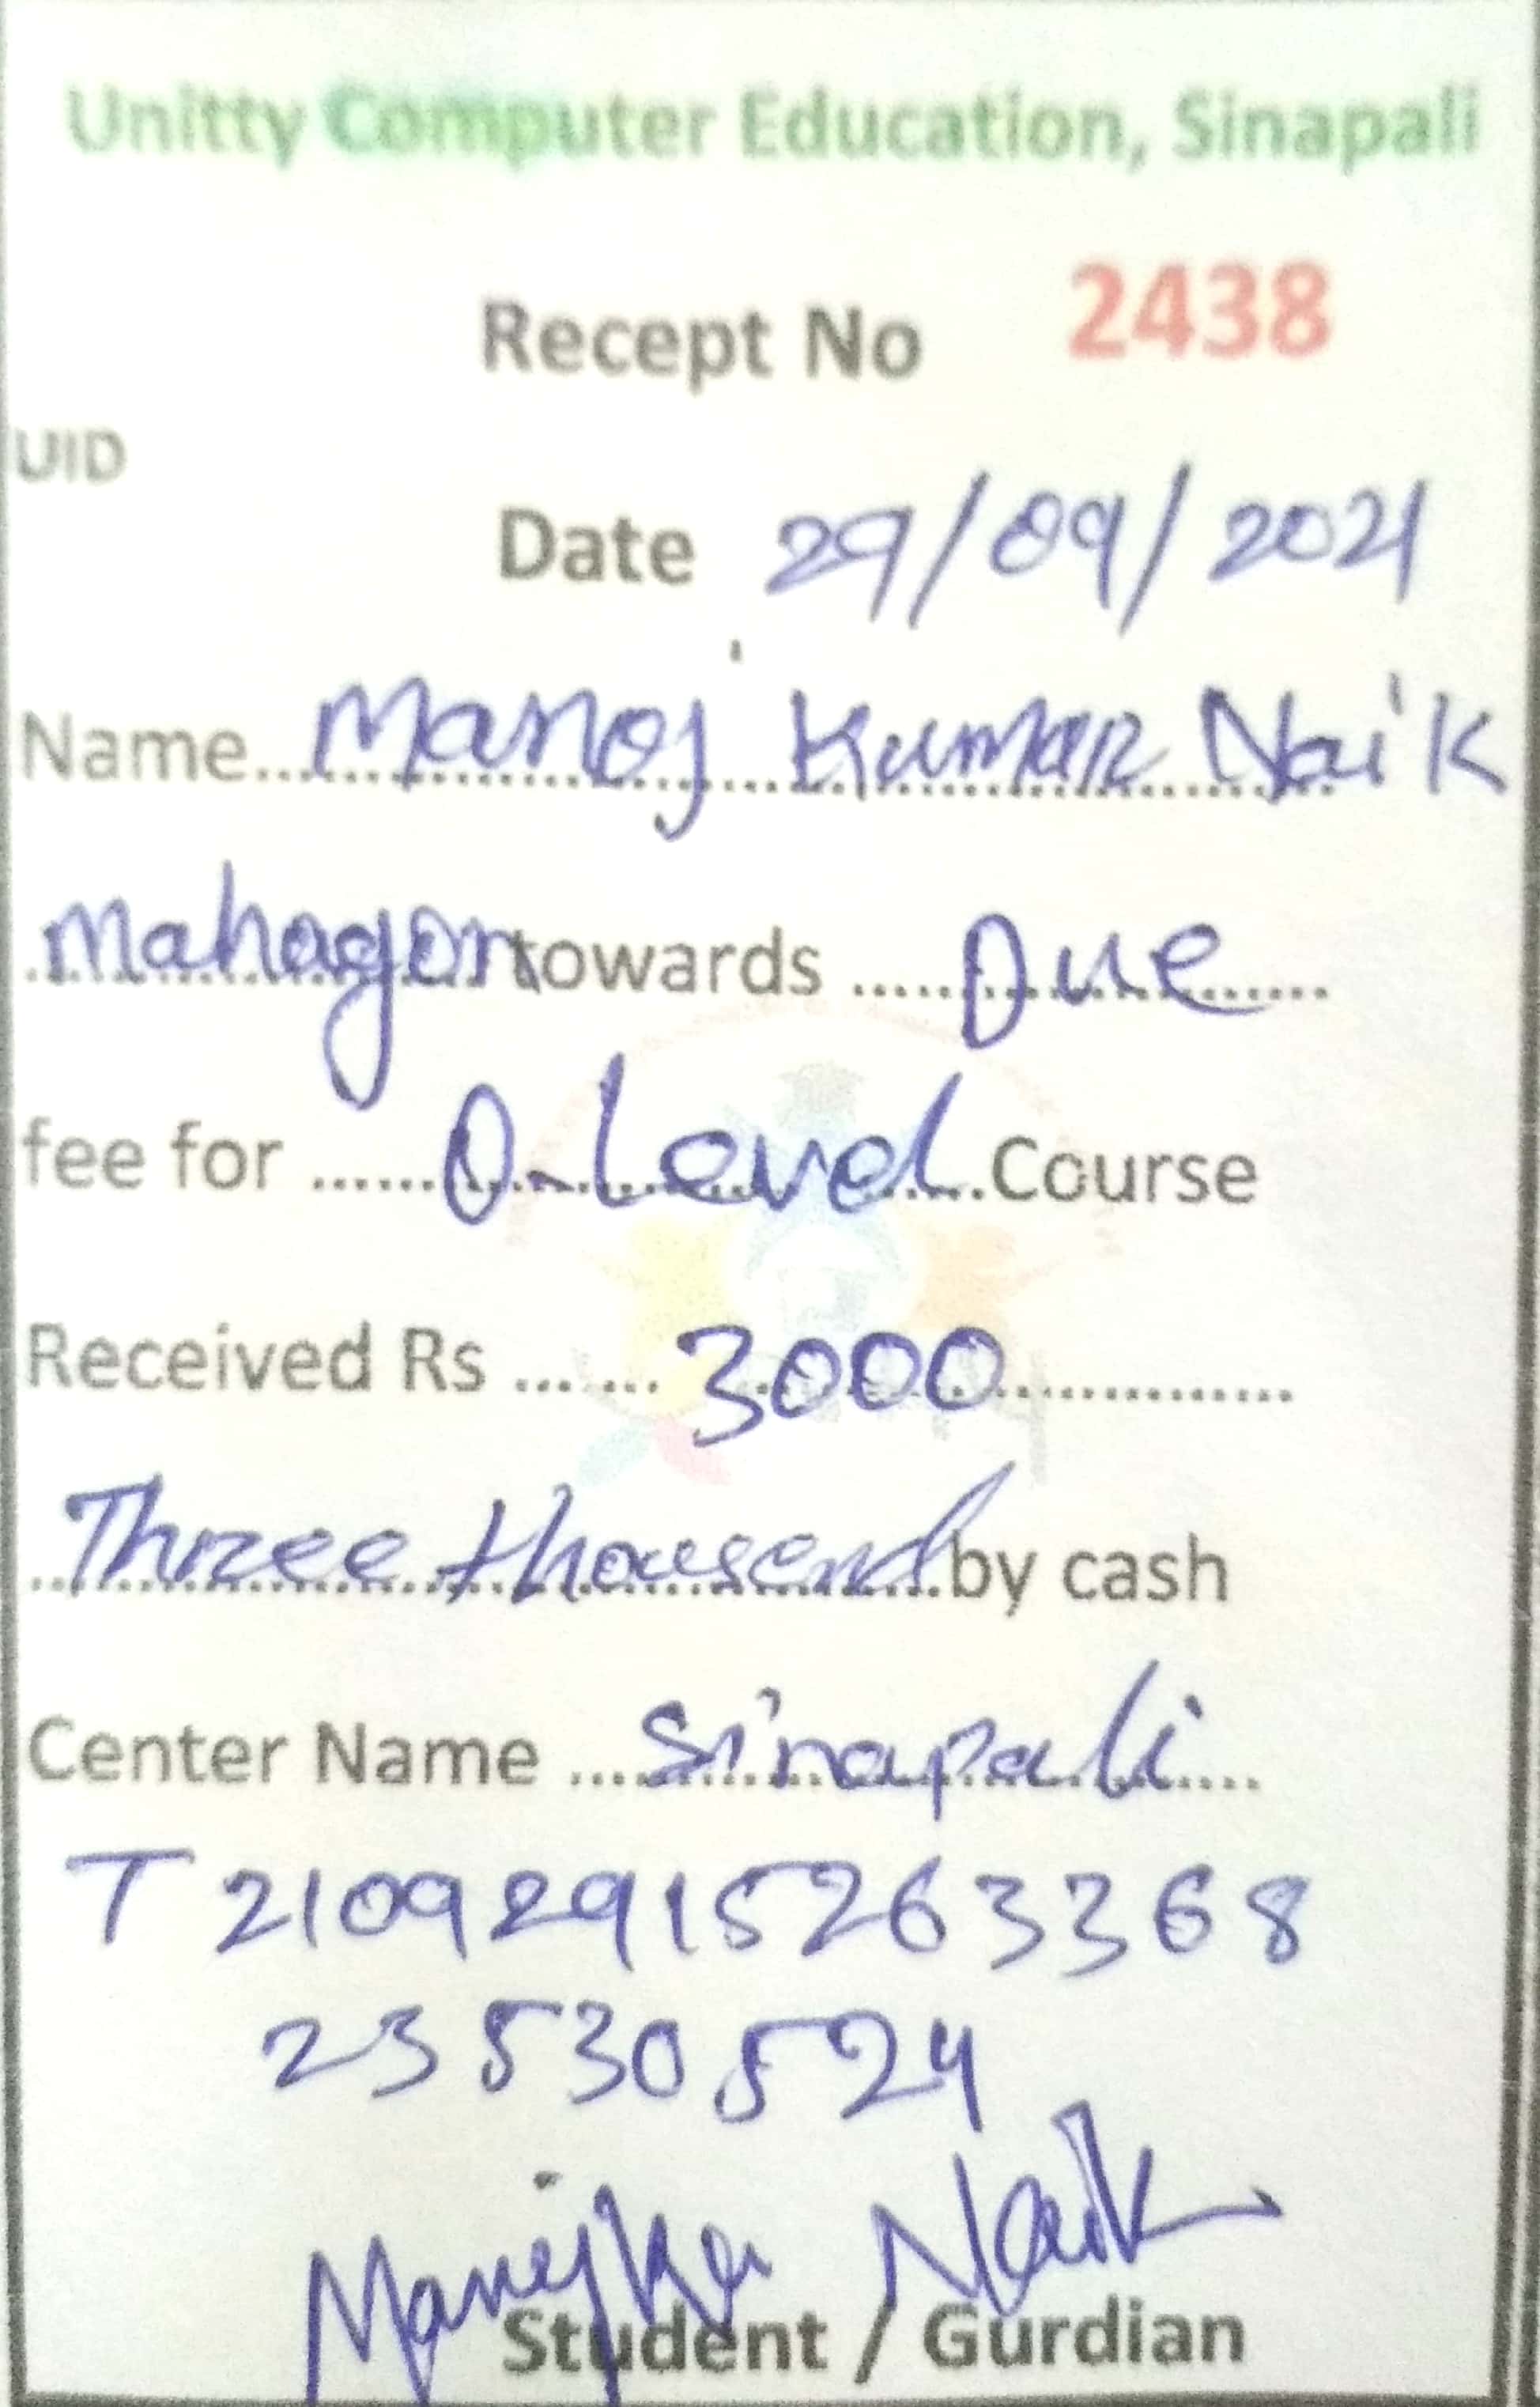 Unitty Computer Education, Sinapali
Recept No 2438
UID
Date 29/09/2021
Name Manoj Kumar Naik
Mahagon towards Due
fee for O-Level Course
Received Rs 3000
Three thousend by cash
Center Name Sinapali
T 2109291526 3368
23530524
Manoj Kr Naik
Student / Gurdian